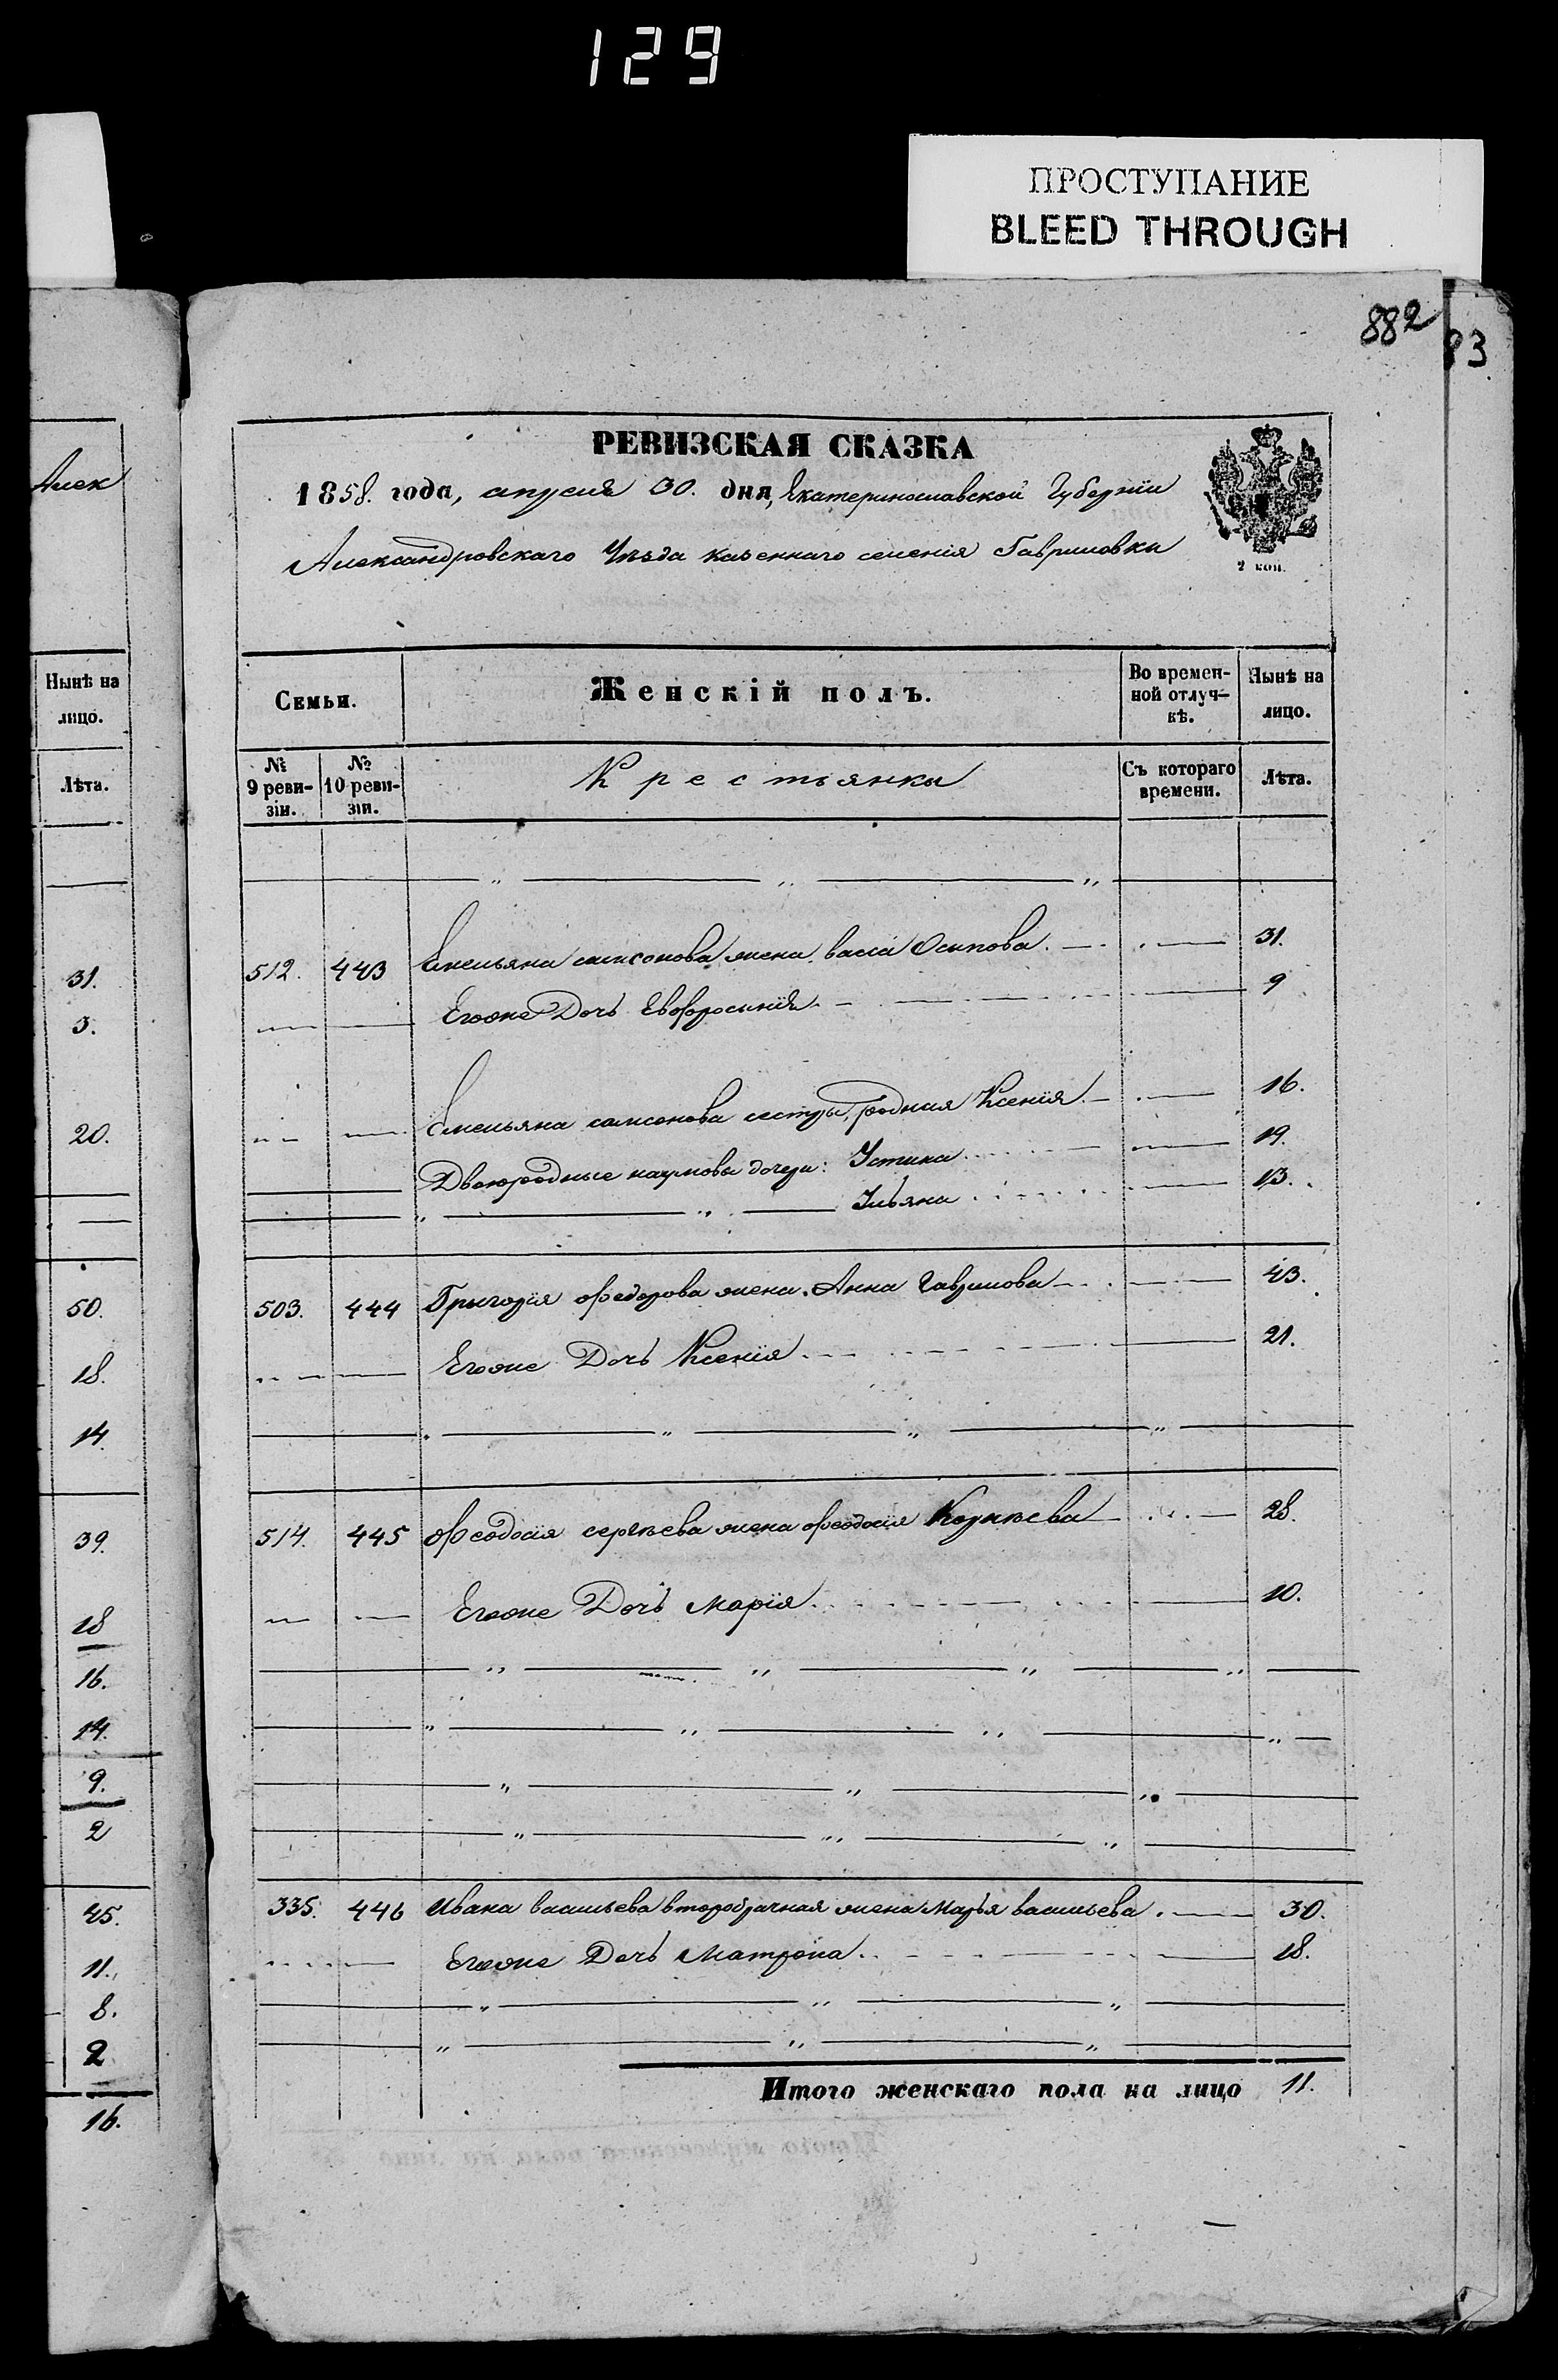 129
ПРОСТУПАНИЕ
BLEED THROUGH
882
83
Алек
Нынѣ на
лицо.
Лѣта.
31.
3.
20.
50.
18.
14.
39.
18
16.
14.
9.
2
45.
11.
8.
2
16.
РЕВИЗСКАЯ СКАЗКА
1858. года, апреля 30. дня, Екатеринославской Губернiи
Александровскаго Уѣзда казеннаго селенiя Гавриловки
2 коп.
Семьи.
Женскiй полъ.
Во времен-
ной отлуч-
кѣ.
Нынѣ на
лицо.
№
9 реви-
зiи.
№
10 реви-
зiи.
Крестьянки
Съ котораго
времени.
Лѣта.
512. 443 Емельяна самсонова жена Осипова. 31.
Егоже Дочь Евфросинiя 9
Емельяна самсонова сестры, родная Ксенiя 16.
Двоюродные наумовы дочери: Устина 19.
Ульяна 13.
503. 444 Григорiя федорова жена Анна Гаврилова 43.
Егоже Дочь Ксенiя 21.
514. 445 Феодосiя сергѣева жена феодосiя Корнѣева 28.
Егоже Дочь Марiя 10.
335. 446 Ивана васильева второбрачная жена Марья васильева 30.
Егоже Дочь Матрона 18.
Итого женскаго пола на лицо 11.